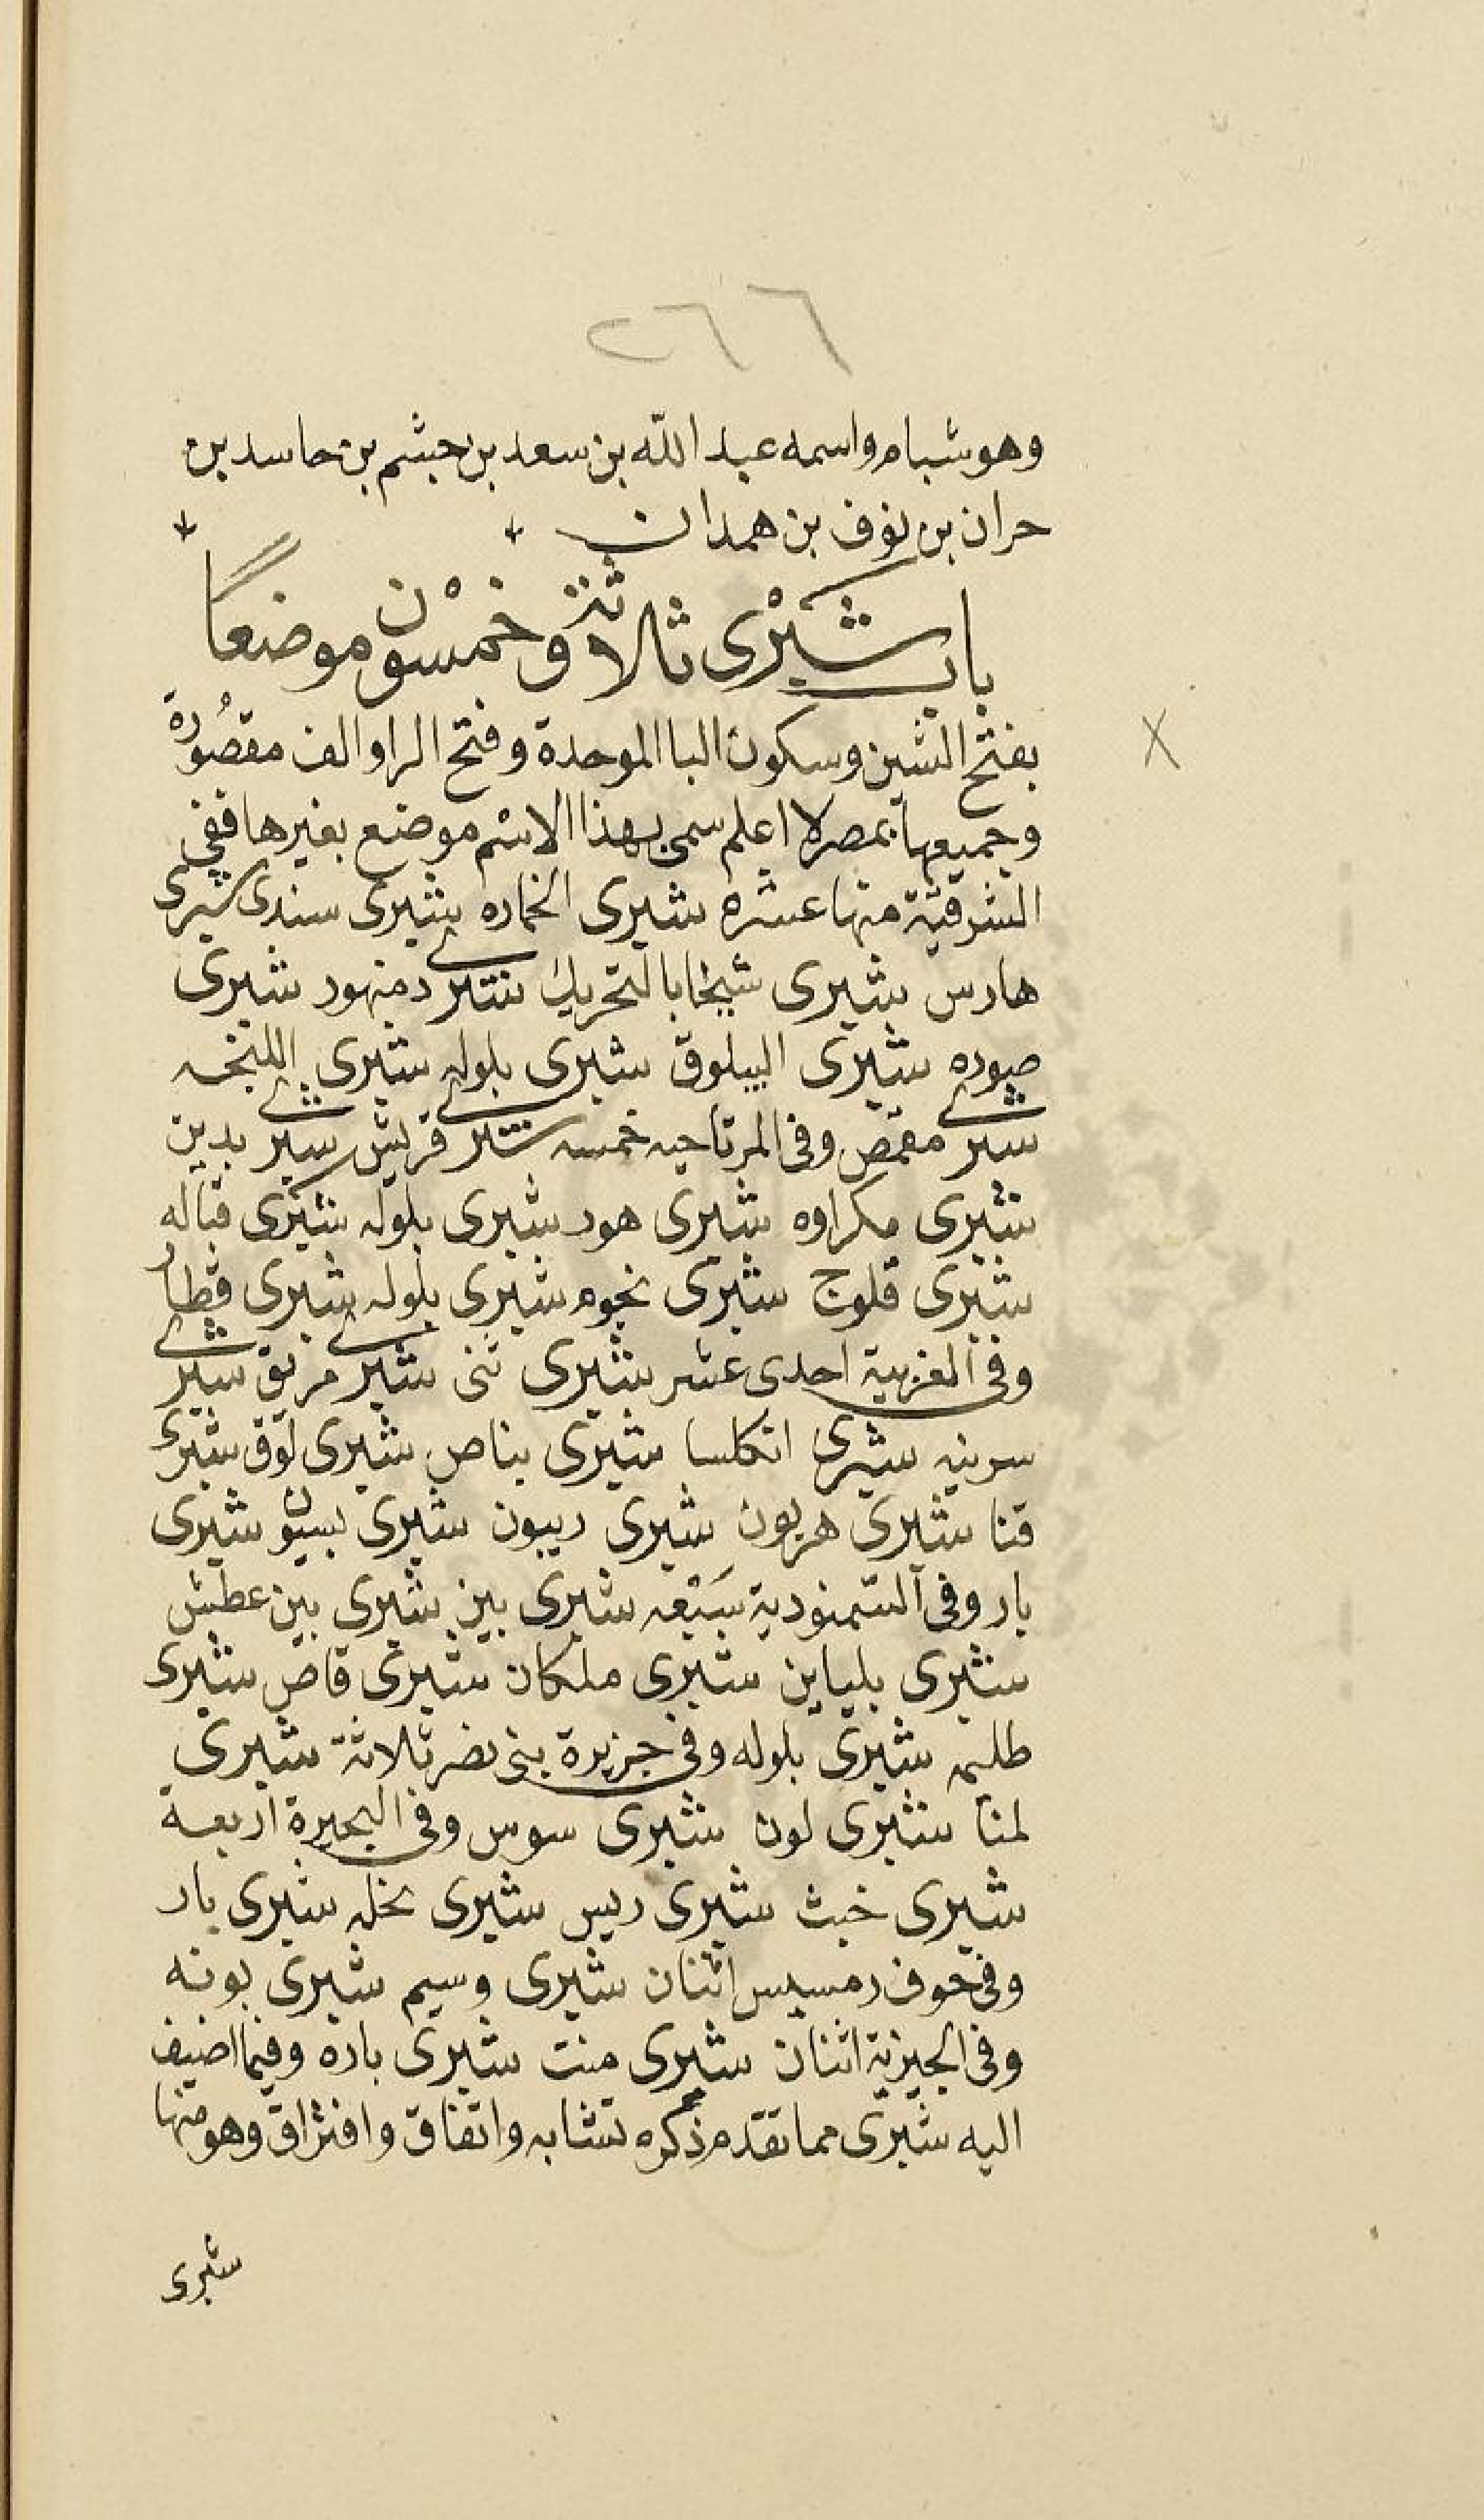 ٢٦٦
وهو شبام واسمه عبد الله بن سعد بن جشم بن حاسد بن
حران بن نوف بن همدان
باب شَبْرى ثلاثة وخمسون موضعاً
بفتح الشين وسكون البا الموحدة وفتح الرا والف مقصُورة
وجميعها بمصر لا اعلم سمى بهذا الاسم موضع بغيرها ففى
الشرقية منها عشره شبرى الخماره شبرى سندى شبرى
هارس شبرى شيخا بالتحريك شبرى دمنهور شبرى
صوره شبرى البيلوق شبرى بلوله شبرى اللنجه
شبرى مقمص وفى المرتاحيه خمسه شبرى قريش شبرى بدين
شبرى مكراوه شبرى هور شبرى بلوله شبرى قباله
شبرى قلوج شبرى نجوم شبرى بلوله شبرى قطار
وفى الغربية احدى عشر شبرى تنى شبرى مريق شبرى
سرينه شبرى انكلسا شبرى بناص شبرى لوق شبرى
قنا شبرى هربون شبرى ريبون شبرى بسيون شبرى
بار وفى السمنودية سَبْعه شبرى بين شبرى بين عطش
شبرى بلياين شبرى ملكان شبرى قاص شبرى
طليمه شبرى بلوله وفى جزيرة بنى نصر ثلاثة شبرى
لمنا شبرى لون شبرى سوس وفى البحيرة اربعة
شبرى خيث شبرى ريس شبرى نخله شبرى بار
وفى حوف رمسيس اثنان شبرى وسيم شبرى بونه
وفى الجيزية اثنان شبرى منت شبرى باره وفيما اضيف
اليه شبرى مما تقدم ذكره تشابه واتفاق وافتراق وهو منها
شبرى